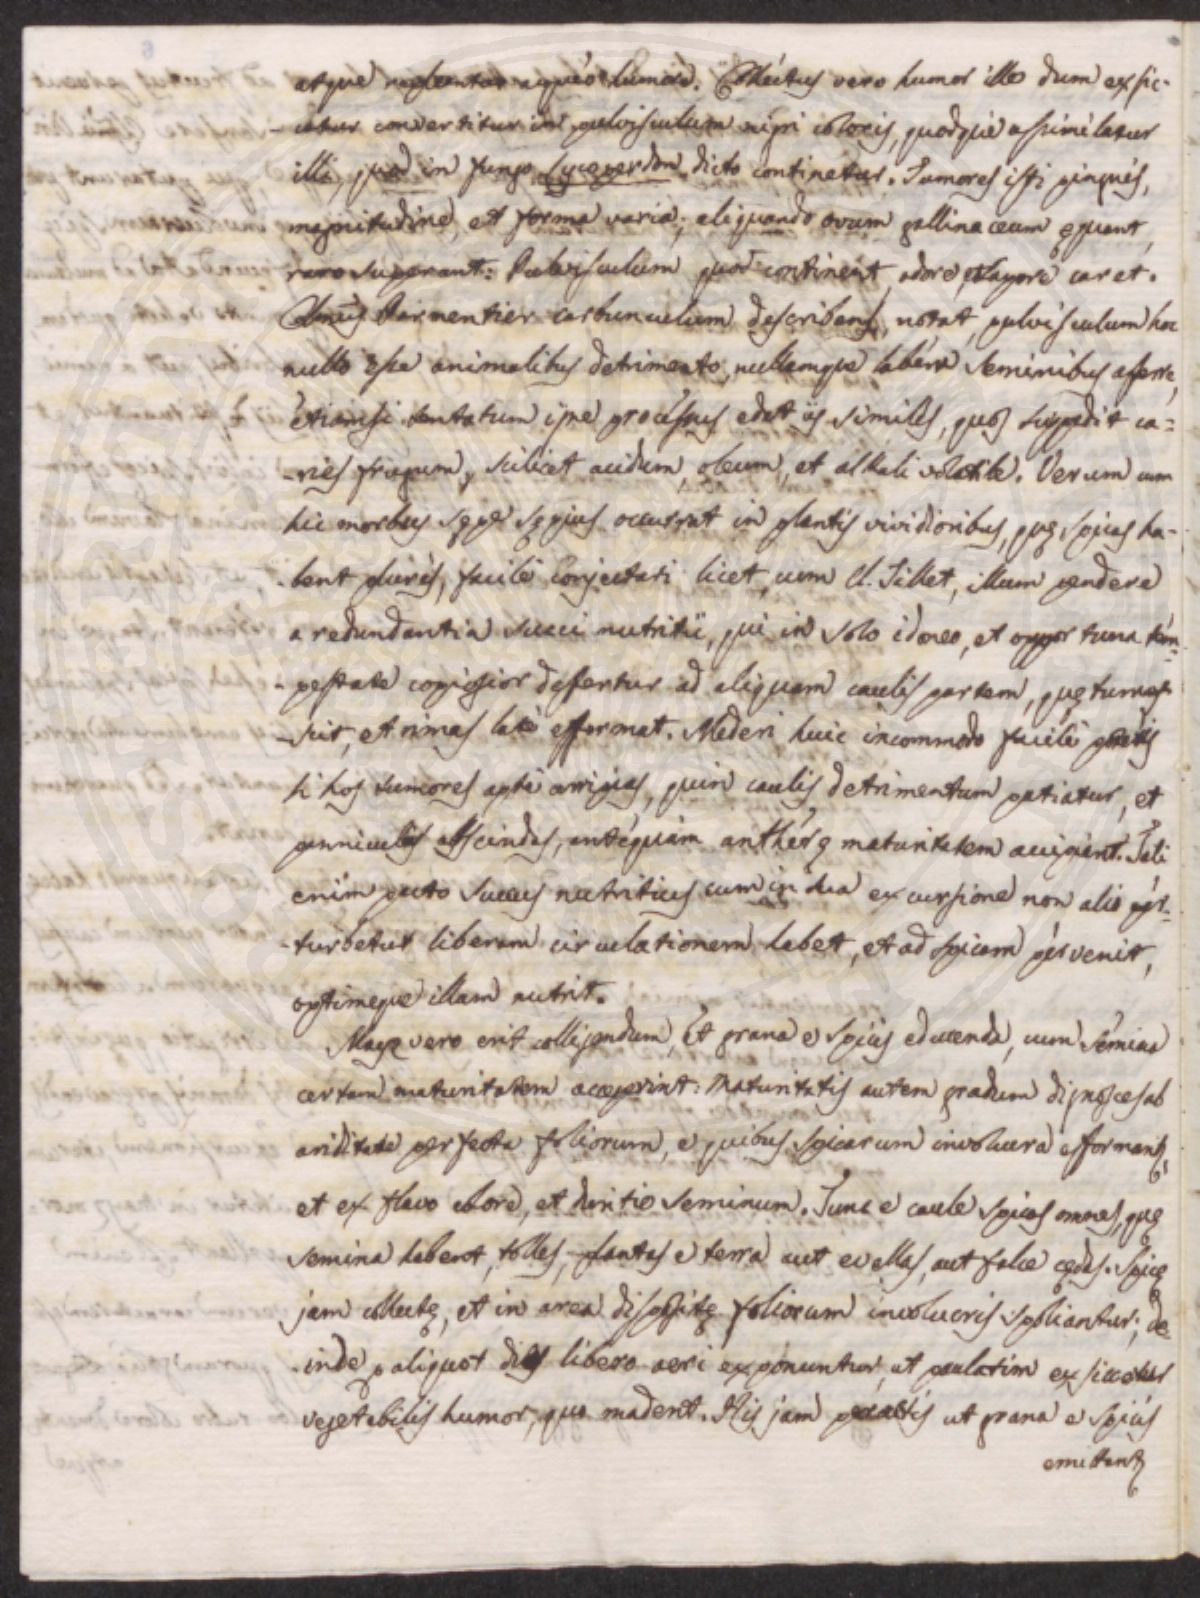 atque replentur aqueo humore. Collectus vero humor ille dum exsic-
-catur convertitur in pulvisculum nigri coloris, quodque assimilatur
illi, quod in fungo Lycoperdon dicto continetur. Tumores isti pingues,
magnitudine, et forma varia, aliquando ovum gallinaceum ęquant,
raro superant: Pulvisculum quod continent, odore, et sapore caret.
Parmentier carbunculum describens, notat, pulvisculum hoc
nullo esse animalibus detrimento, nullamque labem seminibus aferre,
etiamsi tentatum igne processus edat iis similes, quos suppedit ca-
-ries frugum, scilicet acidum, oleum, et alkali volatile. Verum cum
hic morbus sępe sępius occurrat in plantis vividioribus, quę spicas ha-
-bent plures, facile conjectari licet, cum Cl. Tillet, illum pendere
a redundantia succi nutritii, qui in solo idoneo, et opportuna tem-
-pestate copiosior defertur ad aliquam caulis partem, quę tumes-
-cit, et rimas late efformat. Mederi huic incommodo facile poteris
si hos tumores apte arripias, quin caulis detrimentum patiatur, et
panniculas abscindas, antequam antherę maturitatem accipiant. Tali
enim pacto succus nutritius cum in sua excursione non alio per-
-turbetur liberam circulationem habet, et ad spicam pervenit,
optimeque illam nutrit.
Mays vero erit colligendum, et grana e spicis educenda, cum semina
certam maturitatem acceperint: Maturitatis autem gradum dignosces ab
ariditate perfecta foliorum, e quibus spicarum involucra efformant,
et ex flavo colore, et duritie seminum. Tunc e caule spicas omnes, quę
semina habent, tolles, plantas e terra aut evellas, aut falce cędas. Spicę
jam collectę, et in area dispositę foliorum involucris spoliantur; de-
-inde aliquot dies libero aeri exponuntur, ut paulatim exsiccetur
vegetabilis humor, quo madent. His jam peractis ut grana e spicis
emittant